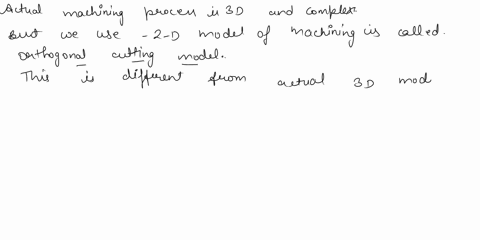 Actual machining process is 3D and complex.
But we use -2-D model of machining is called.
orthogonal cutting model.
This is different from actual 3D mod